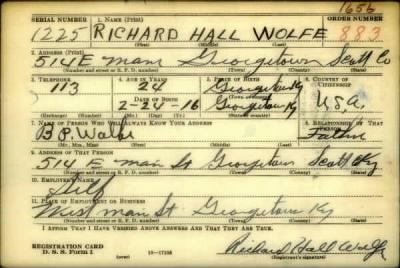 1656
SERIAL NUMBER 1. NAME (Print) ORDER NUMBER
1225 RICHARD HALL WOLFE 883
(First) (Middle) (Last)
2. ADDRESS (Print)
514 E Main Georgetown Scott Co
(Number and street or R. F. D. number) (Town) (County) (State)
3. TELEPHONE 4. AGE IN YEARS 5. PLACE OF BIRTH 6. COUNTRY OF CITIZENSHIP
113 24 Georgetown Ky
DATE OF BIRTH (Town or county)
2-24-16 Georgetown Ky U.S.A.
(Mo.) (Day) (Yr.) (State or country)
7. NAME OF PERSON WHO WILL ALWAYS KNOW YOUR ADDRESS 8. RELATIONSHIP OF THAT PERSON
B P. Wolfe Father
(Mr., Mrs., Miss) (First) (Middle) (Last)
9. ADDRESS OF THAT PERSON
514 E Main St Georgetown Scott Ky
(Number and street or R. F. D. number) (Town) (County) (State)
10. EMPLOYER'S NAME
Self
11. PLACE OF EMPLOYMENT OR BUSINESS
West Main St Georgetown Ky
(Number and street or R. F. D. number) (Town) (County) (State)
I AFFIRM THAT I HAVE VERIFIED ABOVE ANSWERS AND THAT THEY ARE TRUE.
REGISTRATION CARD
D. S. S. Form 1 (over) 16-17105 Richard Hall Wolfe
(Registrant's signature)